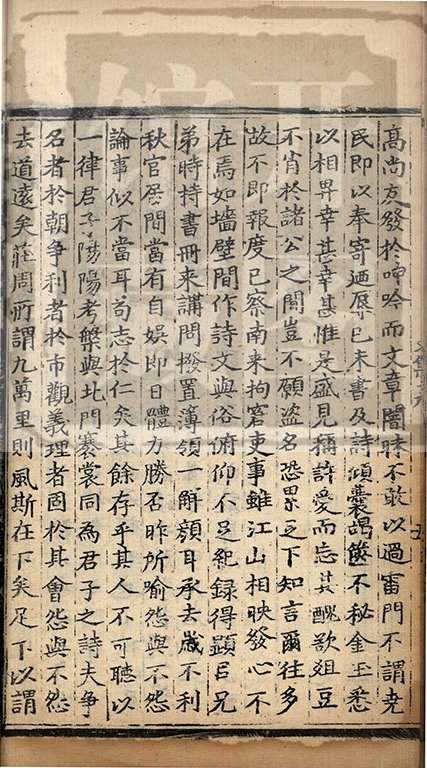 高尚友發於呻吟而文章闇昧不敢以過雷門不謂堯
民即以奉寄迺辱已未書及詩傾囊竭篋不秘金玉悉
以相畀幸甚幸甚惟是盛見稱許愛而忘其醜欲俎豆
不肖於諸公之間豈不願盜名恐累足下知言爾往多
故不即報度已察南来拘窘吏事雖江山相映發心不
在焉如墻壁間作詩文與俗俯仰不足紀録得顕臣兄
弟時持書冊来講問撥置簿領一解顔耳承去嵗不利
秋官居間當有自娱即日體力勝否昨所喻怨與不怨
論事似不當耳苟志於仁矣其餘存乎其人不可聽以
一律君子陽陽考槃與北門褰裳同為君子之詩夫争
名者於朝争利者於市觀義理者固於其會怨與不怨
去道逺矣莊周所謂九萬里則風斯在下矣足下以謂